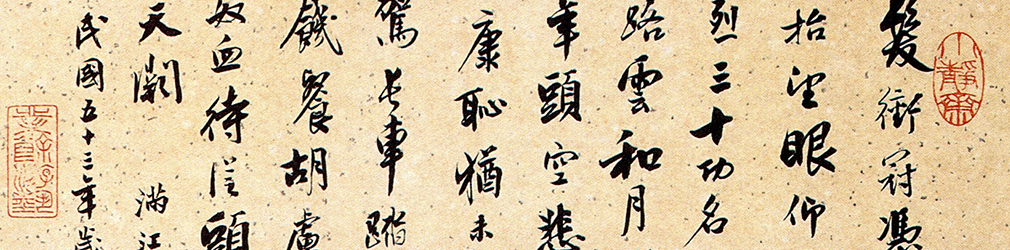 髮衝冠憑
抬望眼仰
烈三十功名
路雲和月
年頭空悲
康恥猶未
駕長車踏
饑餐胡虜
奴血待從頭
天闕 滿江
民國五十三年歲